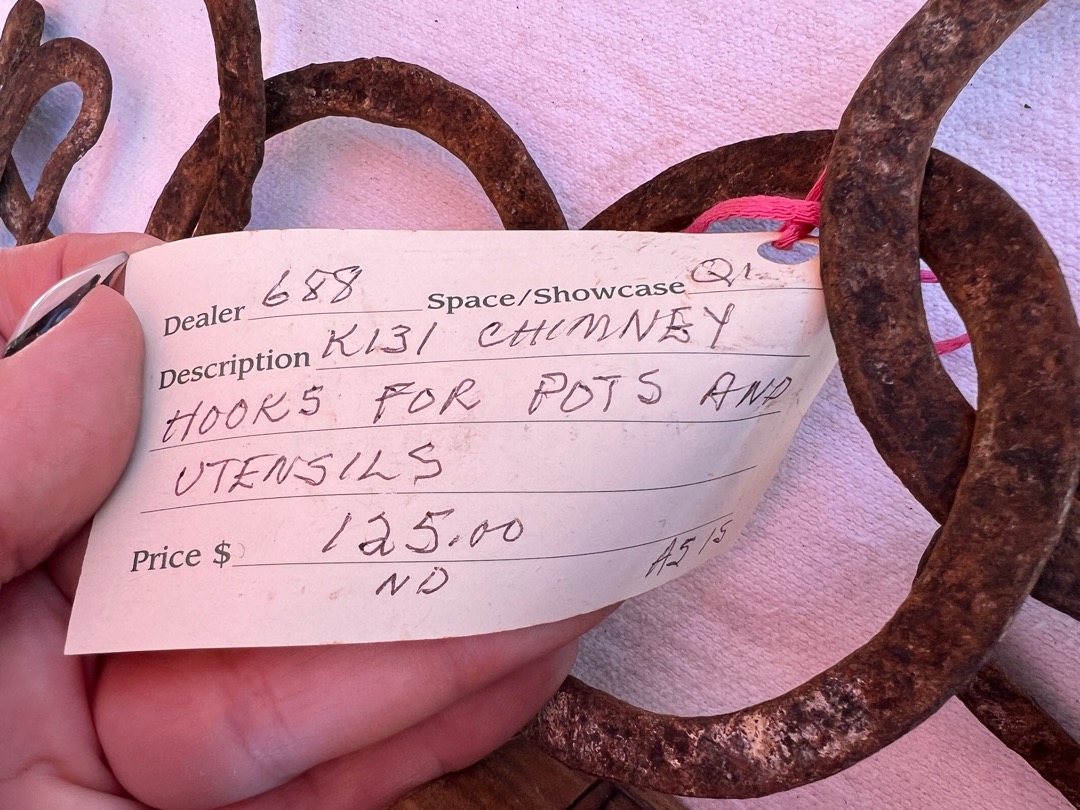 Dealer 688 Space/Showcase Q1
Description K131 CHIMNEY
HOOKS FOR POTS AND
UTENSILS
Price $ 125.00 AS IS
ND